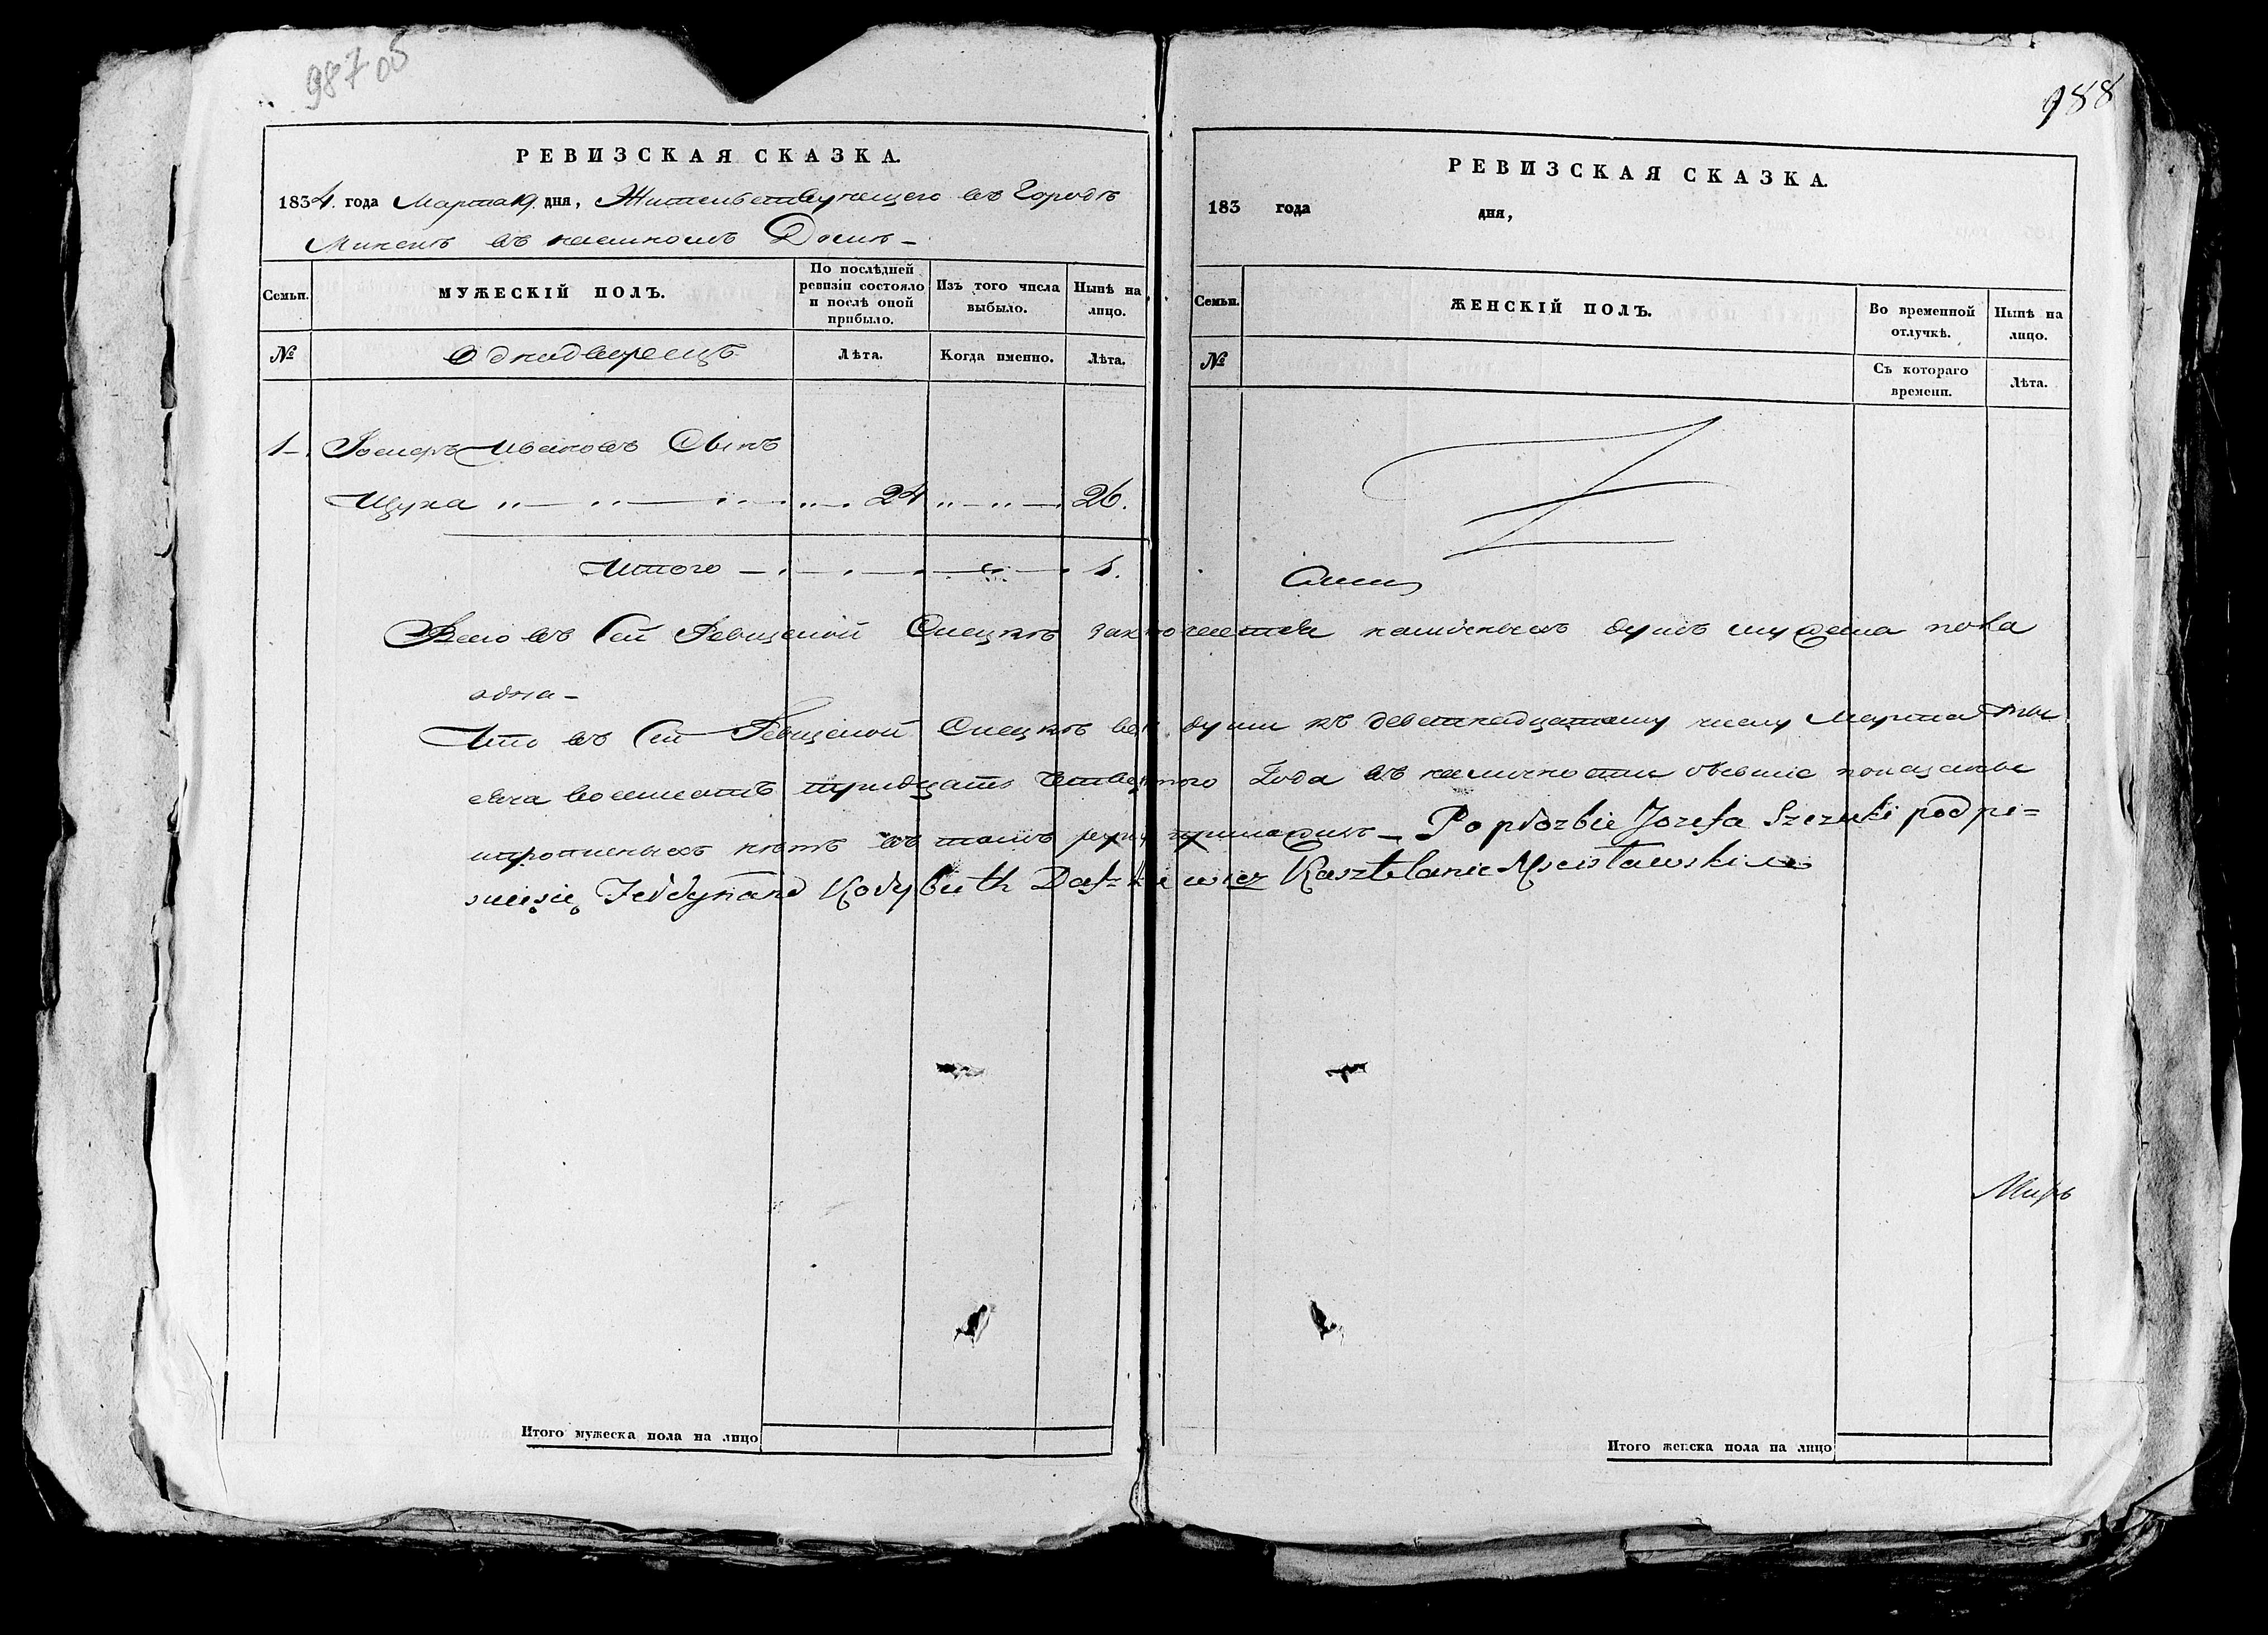 987 об
988
РЕВИЗСКАЯ СКАЗКА.
1834. года Марта 19. дня, Жительствующего въ Городѣ
Минскѣ въ наемномъ Домѣ –
Семьи.
МУЖЕСКІЙ ПОЛЪ.
По послѣдней ревизіи состояло и послѣ оной прибыло.
Изъ того числа выбыло.
Нынѣ на лицо.
№
Однодворецъ
Лѣта.
Когда именно.
Лѣта.
1
Іосифъ Ивановъ Сынъ
Щука 24 26.
Итого 1.
РЕВИЗСКАЯ СКАЗКА.
183 года дня,
Семьи.
ЖЕНСКІЙ ПОЛЪ.
Во временной отлучкѣ.
Нынѣ на лицо.
№
Съ котораго времени.
Лѣта.
Всего въ Сей Ревизской Скаскѣ заключается наличныхъ душъ мужеска пола
одна –
Что въ Сей Ревизской Скаскѣ всѣ души къ девятнадцатому числу Марта ты
сяча восемсотъ тридцать четвертого Года въ наличности бывшіе показаны
и прописныхъ нѣтъ въ томъ – Po proźbie Jozefa Szczuki podpi=
suiesię Ferdynand Korybuth Daszkiewicz Kasztelanic Mscisławski
Итого мужеска пола на лицо
Итого женска пола на лицо